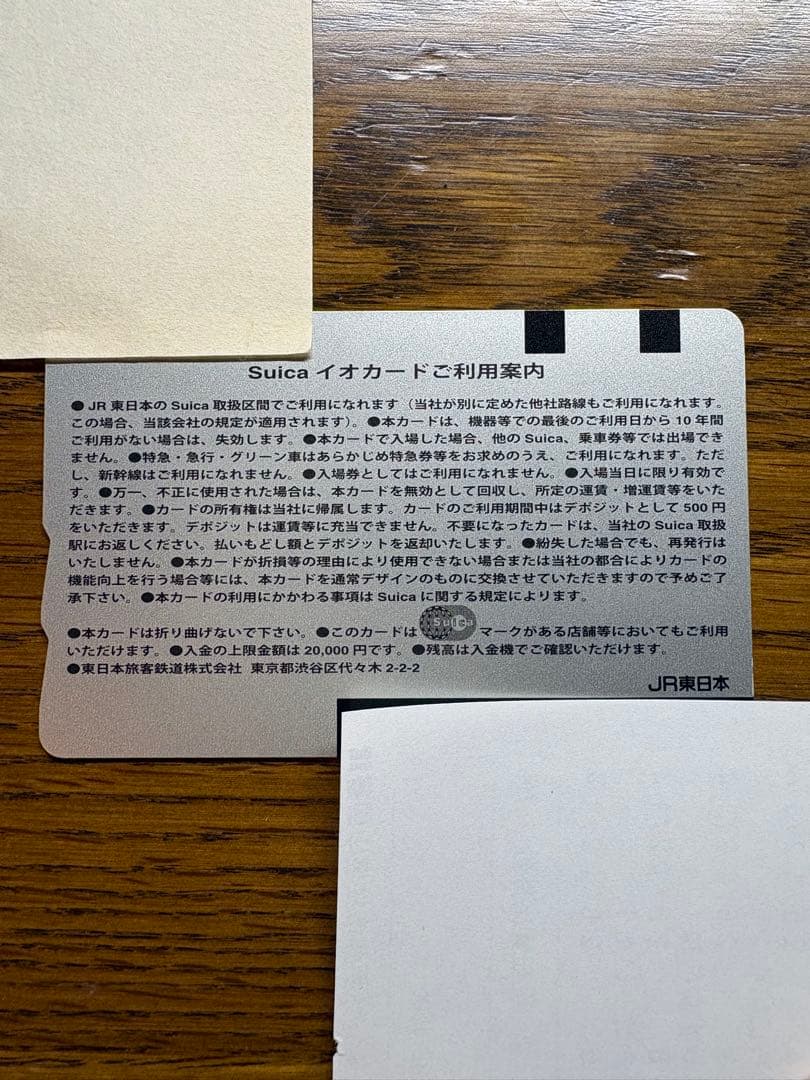 Suica イオカードご利用案内
●JR 東日本の Suica 取扱区間でご利用になれます（当社が別に定めた他社路線もご利用になれます。
この場合、当該会社の規定が適用されます）。●本カードは、機器等での最後のご利用日から 10 年間
ご利用がない場合は、失効します。●本カードで入場した場合、他の Suica、乗車券等では出場でき
ません。●特急・急行・グリーン車はあらかじめ特急券等をお求めのうえ、ご利用になれます。ただ
し、新幹線はご利用になれません。●入場券としてはご利用になれません。●入場当日に限り有効で
す。●万一、不正に使用された場合は、本カードを無効として回収し、所定の運賃・増運賃等をいた
だきます。●カードの所有権は当社に帰属します。カードのご利用期間中はデポジットとして 500 円
をいただきます。デポジットは運賃等に充当できません。不要になったカードは、当社の Suica 取扱
駅にお返しください。払いもどし額とデポジットを返却いたします。●紛失した場合でも、再発行は
いたしません。●本カードが折損等の理由により使用できない場合または当社の都合によりカードの
機能向上を行う場合等には、本カードを通常デザインのものに交換させていただきますので予めご了
承下さい。●本カードの利用にかかわる事項は Suica に関する規定によります。
●本カードは折り曲げないで下さい。●このカードは Suica マークがある店舗等においてもご利用
いただけます。●入金の上限金額は 20,000 円です。●残高は入金機でご確認いただけます。
●東日本旅客鉄道株式会社 東京都渋谷区代々木 2-2-2
JR東日本